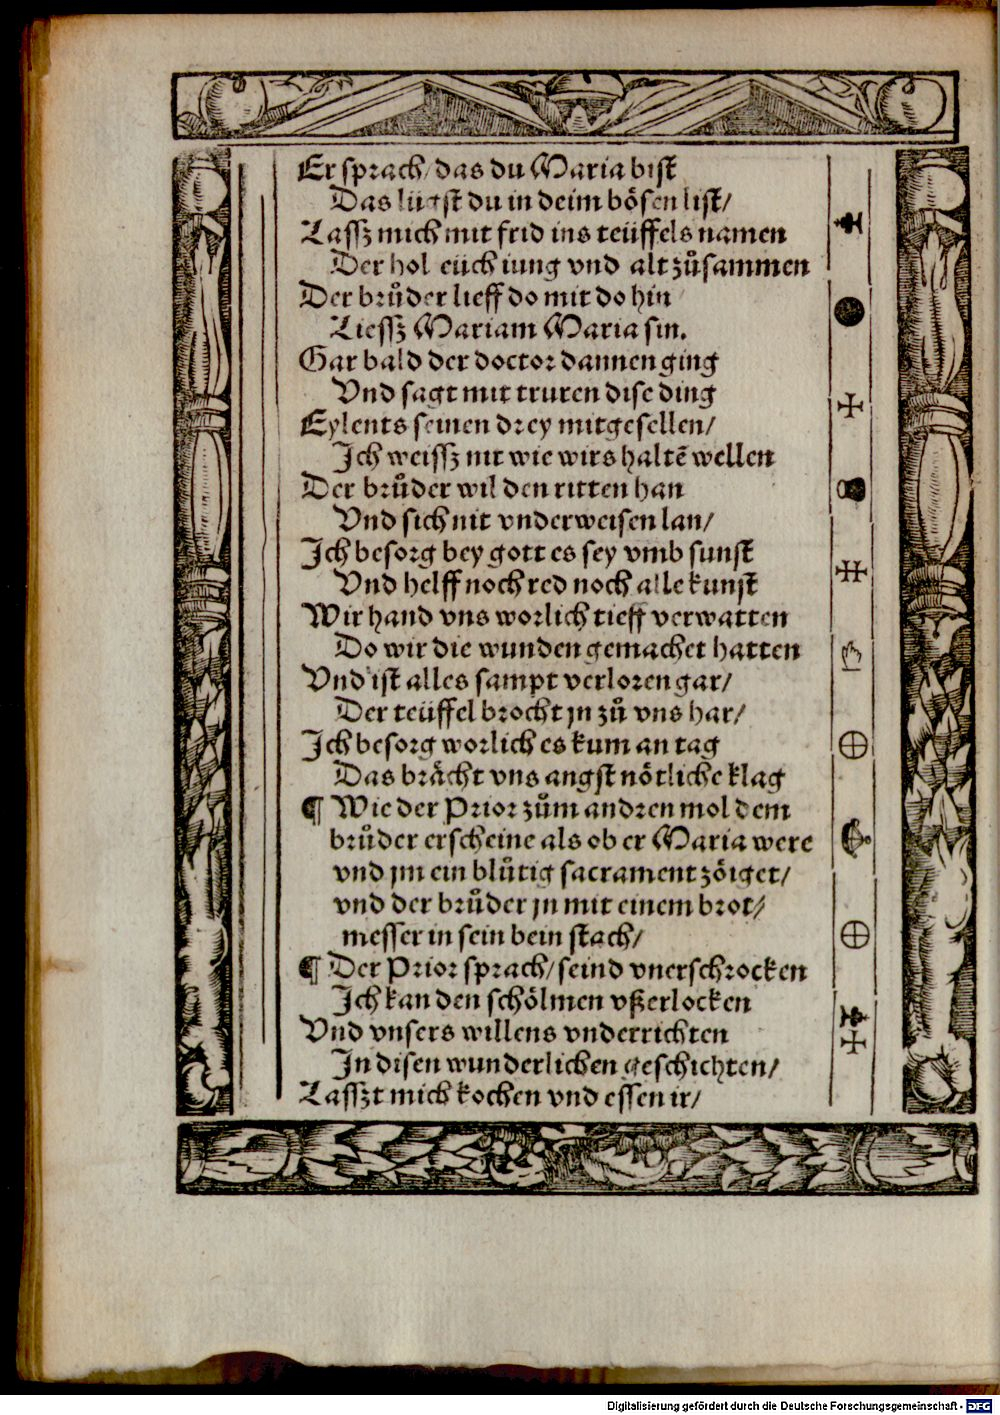 Er sprach/ das du Maria bist
Das liigst du in deim bösen list/
Lassz mich mit frid ins teüffels namen
Der hol eüch iung vnd alt zůsammen
Der brůder lieff do mit do hin
Liessz Mariam Maria sin.
Gar bald der doctor dannen ging
Vnd sagt mit truren dise ding
Eylents seinen drey mitgesellen/
Ich weissz nit wie wirs haltē wellen
Der brůder wil den ritten han
Vnd sich nit vnderweisen lan/
Ich besorg bey gott es sey vmb sunst
Vnd helff noch red noch alle kunst
Wir hand vns worlich tieff verwatten
Do wir die wunden gemachet hatten
Vnd ist alles sampt verloren gar/
Der teüffel brocht jn zů vns har/
Ich besorg worlich es kum an tag
Das brächt vns angst nötliche klag
¶ Wie der Prior zům andren mol dem
brůder erscheine als ob er Maria were
vnd jm ein blůtig sacrament zöiget/
vnd der brůder jn mit einem brot/
messer in sein bein stach/
¶ Der Prior sprach/ seind vnerschrocken
Ich kan den schölmen vßerlocken
Vnd vnsers willens vnderrichten
In disen wunderlichen geschichten/
Lasszt mich kochen vnd essen ir/
Digitalisierung gefördert durch die Deutsche Forschungsgemeinschaft - DFG